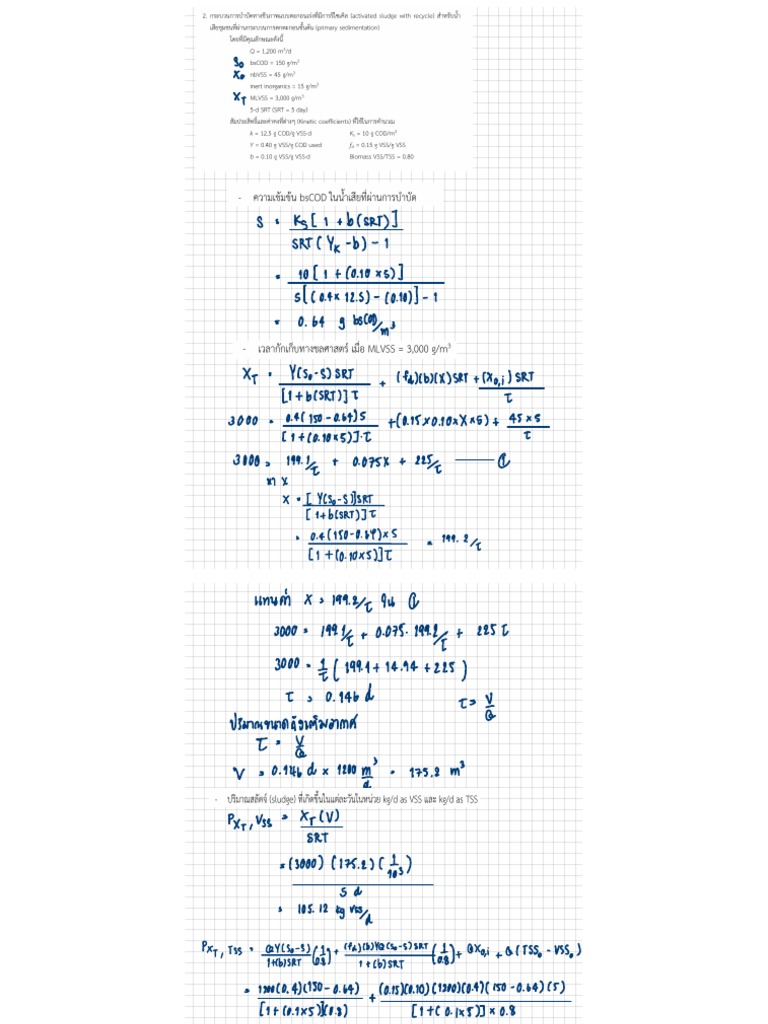 2. กระบวนการบำบัดทางชีวภาพแบบตะกอนเร่งที่มีการรีไซเคิล (activated sludge with recycle) สำหรับน้ำ
เสียชุมชนที่ผ่านกระบวนการตกตะกอนขั้นต้น (primary sedimentation)
โดยที่มีคุณลักษณะดังนี้
Q = 1,200 m³/d
S₀ bsCOD = 150 g/m³
X₀ nbVSS = 45 g/m³
Inert inorganics = 15 g/m³
X_T MLVSS = 3,000 g/m³
5-d SRT (SRT = 5 day)
สัมประสิทธิ์และค่าคงที่ต่างๆ (Kinetic coefficients) ที่ใช้ในการคำนวณ
k = 12.5 g COD/g VSS·d K_s = 10 g COD/m³
Y = 0.40 g VSS/g COD used f_d = 0.15 g VSS/g VSS
b = 0.10 g VSS/g VSS·d Biomass VSS/TSS = 0.80
- ความเข้มข้น bsCOD ในน้ำเสียที่ผ่านการบำบัด
S = K_S [ 1 + b (SRT) ] / SRT ( Y_K - b ) - 1
= 10 [ 1 + (0.10 × 5) ] / 5 [ (0.4 × 12.5) - (0.10) ] - 1
= 0.64 g bsCOD/m³
- เวลากักเก็บทางชลศาสตร์ เมื่อ MLVSS = 3,000 g/m³
X_T = Y(S₀-S) SRT / [1+b(SRT)] τ + (f_d)(b)(X) SRT + (X₀,i) SRT / τ
3000 = 0.4(150-0.64)5 / [1+(0.10×5)]·τ + (0.15×0.10×X×5) + 45×5 / τ
3000 = 199.1/τ + 0.075X + 225/τ —— ①
หา X
X = [Y(S₀-S)]SRT / [1+b(SRT)] τ
= 0.4(150-0.64)×5 / [1+(0.10×5)] τ = 199.2/τ
แทนค่า X = 199.2/τ ใน ①
3000 = 199.1/τ + 0.075·199.2/τ + 225 τ
3000 = 1/τ ( 199.1 + 14.94 + 225 )
τ = 0.146 d τ = V/Q
ปริมาณขนาดถังเติมอากาศ
τ = V/Q
V = 0.146 d × 1200 m³/d = 175.2 m³
- ปริมาณสลัดจ์ (sludge) ที่เกิดขึ้นในแต่ละวันในหน่วย kg/d as VSS และ kg/d as TSS
P_XT, VSS = X_T (V) / SRT
= (3000) (175.2) (1/10³) / 5 d
= 105.12 kg VSS/d
P_XT, TSS = QY(S₀-S) / 1+(b)SRT (1/0.8) + (f_d)(b)YQ(S₀-S)SRT / 1+(b)SRT (1/0.8) + QX₀,i + Q(TSS₀-VSS₀)
= 1200(0.4)(150-0.64) / [1+(0.1×5)](0.8) + (0.15)(0.10)(1200)(0.4)(150-0.64)(5) / [1+(0.1×5)] × 0.8